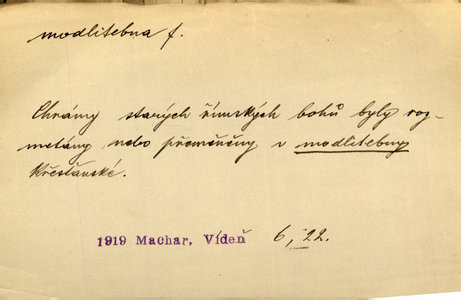 modlitebna f.
Chrámy starých římských bohů byly roz-
metány nebo přeměněny v modlitebny
křesťanské.
1919 Machar, Vídeň 6, 22.